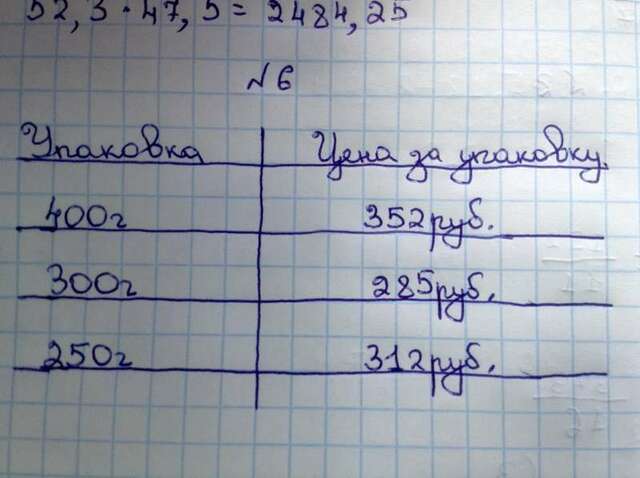 52,3 · 47,5 = 2484,25
№6
Упаковка Цена за упаковку
400г 352руб.
300г 285руб.
250г 312руб.